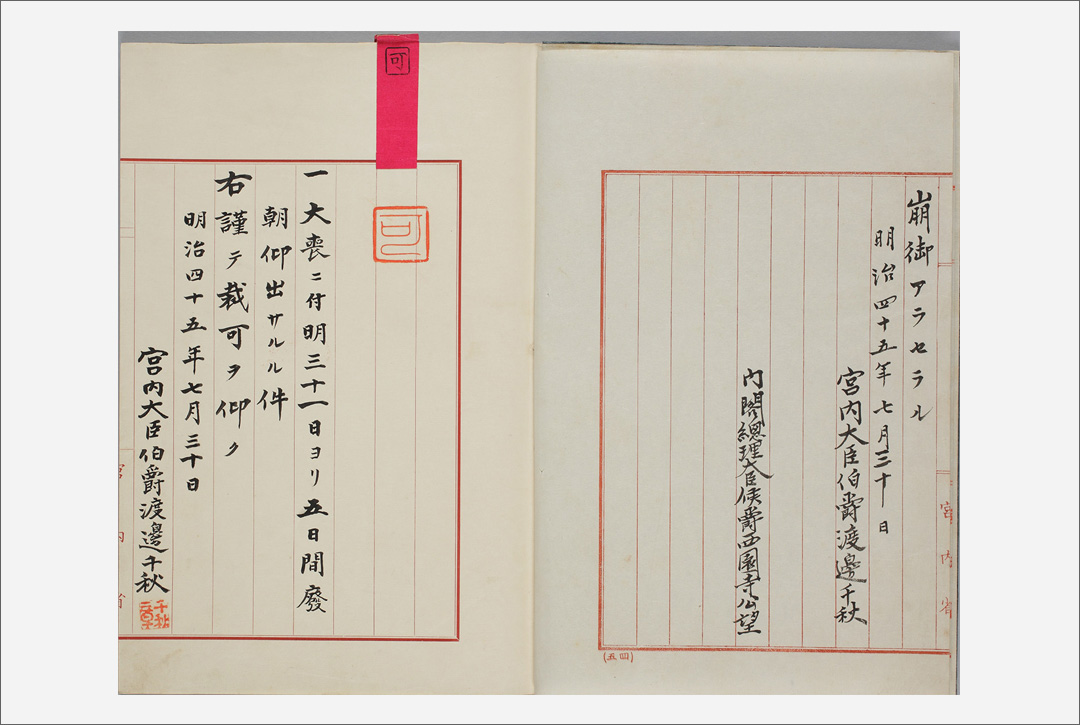 崩御アラセラル
明治四十五年七月三十日
宮内大臣伯爵渡邊千秋
内閣總理大臣侯爵西園寺公望
宮内省
(五四)
可
可
一大喪ニ付明三十一日ヨリ五日間廢
朝仰出サルル件
右謹テ裁可ヲ仰ク
明治四十五年七月三十日
宮内大臣伯爵渡邊千秋
宮内省